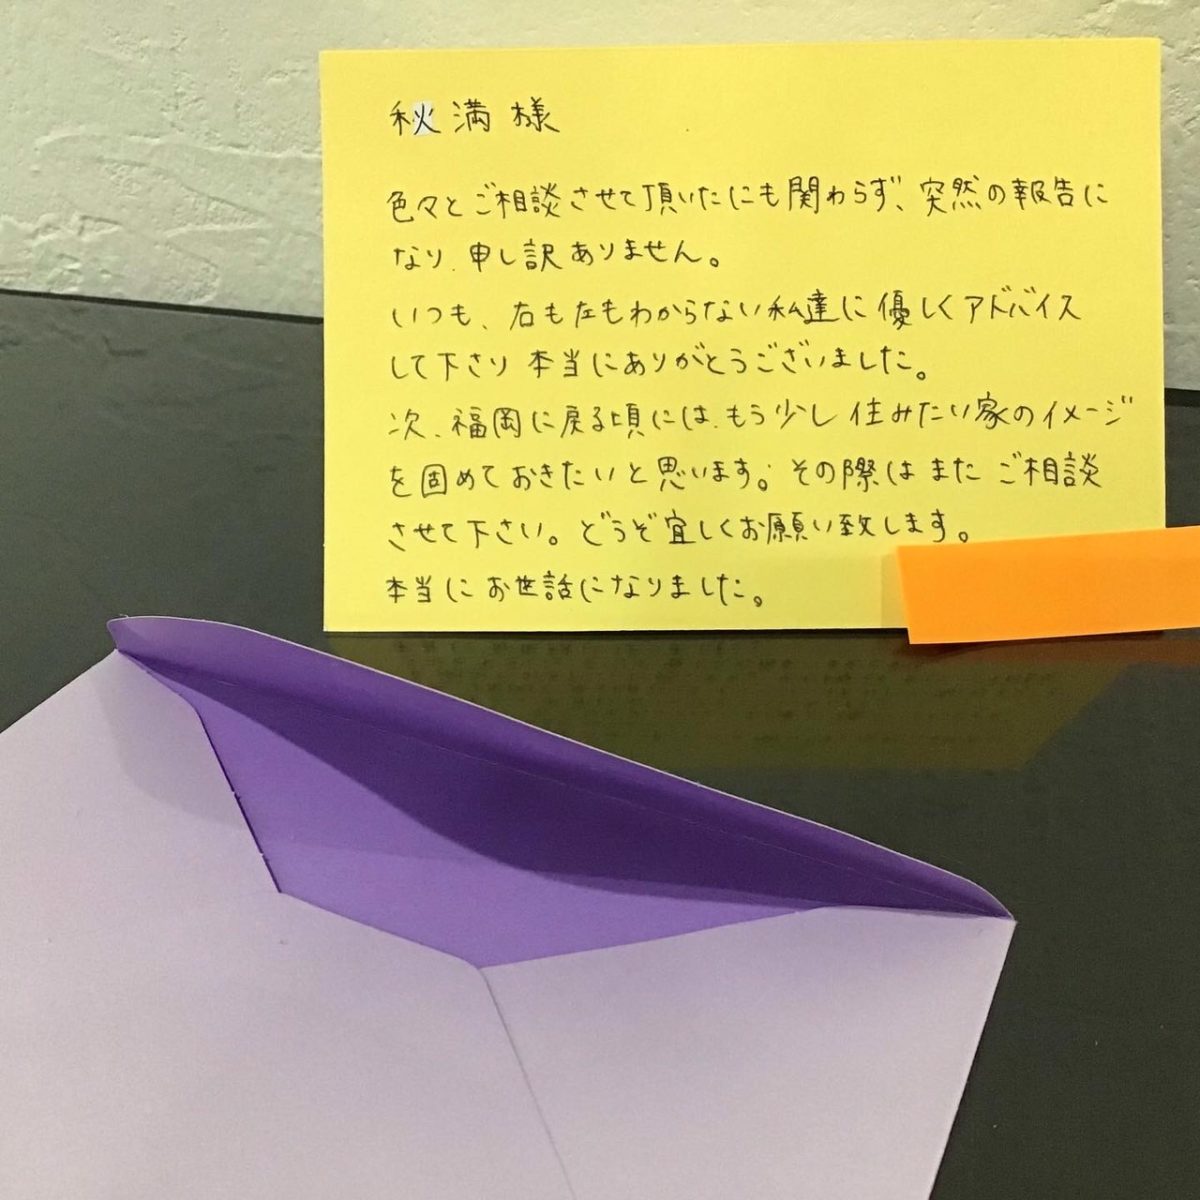 秋満様
色々とご相談させて頂いたにも関わらず、突然の報告に
なり、申し訳ありません。
いつも、右も左もわからない私達に優しくアドバイス
して下さり本当にありがとうございました。
次、福岡に戻る頃には、もう少し住みたい家のイメージ
を固めておきたいと思います。その際はまたご相談
させて下さい。どうぞ宜しくお願い致します。
本当にお世話になりました。